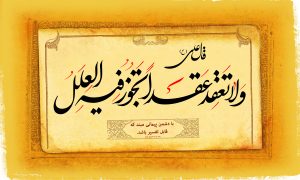 قال علی (ع)
ولا تعقد عقدا تجوز فیه العلل
با دشمن پیمانی مبند که
قابل تفسیر باشد.